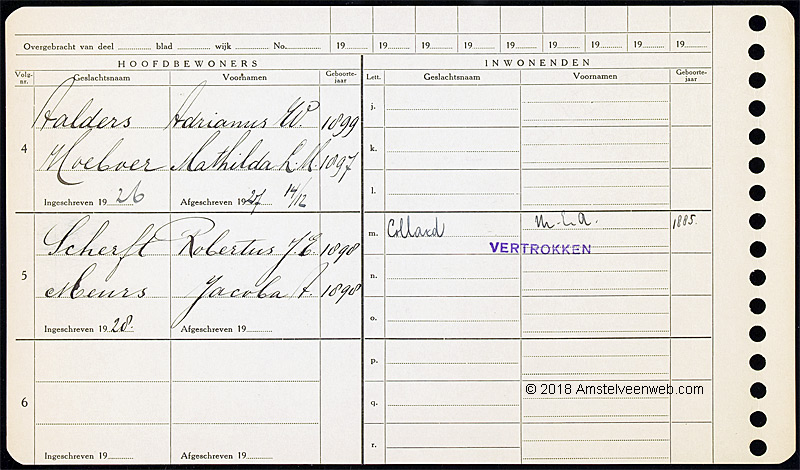 Overgebracht van deel blad wijk No. 19 19 19 19 19 19 19 19 19
HOOFDBEWONERS INWONENDEN
Volg-nr. Geslachtsnaam Voornamen Geboorte-jaar Lett. Geslachtsnaam Voornamen Geboorte-jaar
4 Aalders Adrianus W. 1899 j.
Mathilda L.M. 1897 k.
l.
Ingeschreven 1926 Afgeschreven 1927 14/12
5 Scherft Robertus J.E. 1898 m. Collard M.E.A. 1885.
VERTROKKEN
Meurs Jacoba A. 1898 n.
o.
Ingeschreven 1928. Afgeschreven 19
p.
6 q.
© 2018 Amstelveenweb.com
r.
Ingeschreven 19 Afgeschreven 19